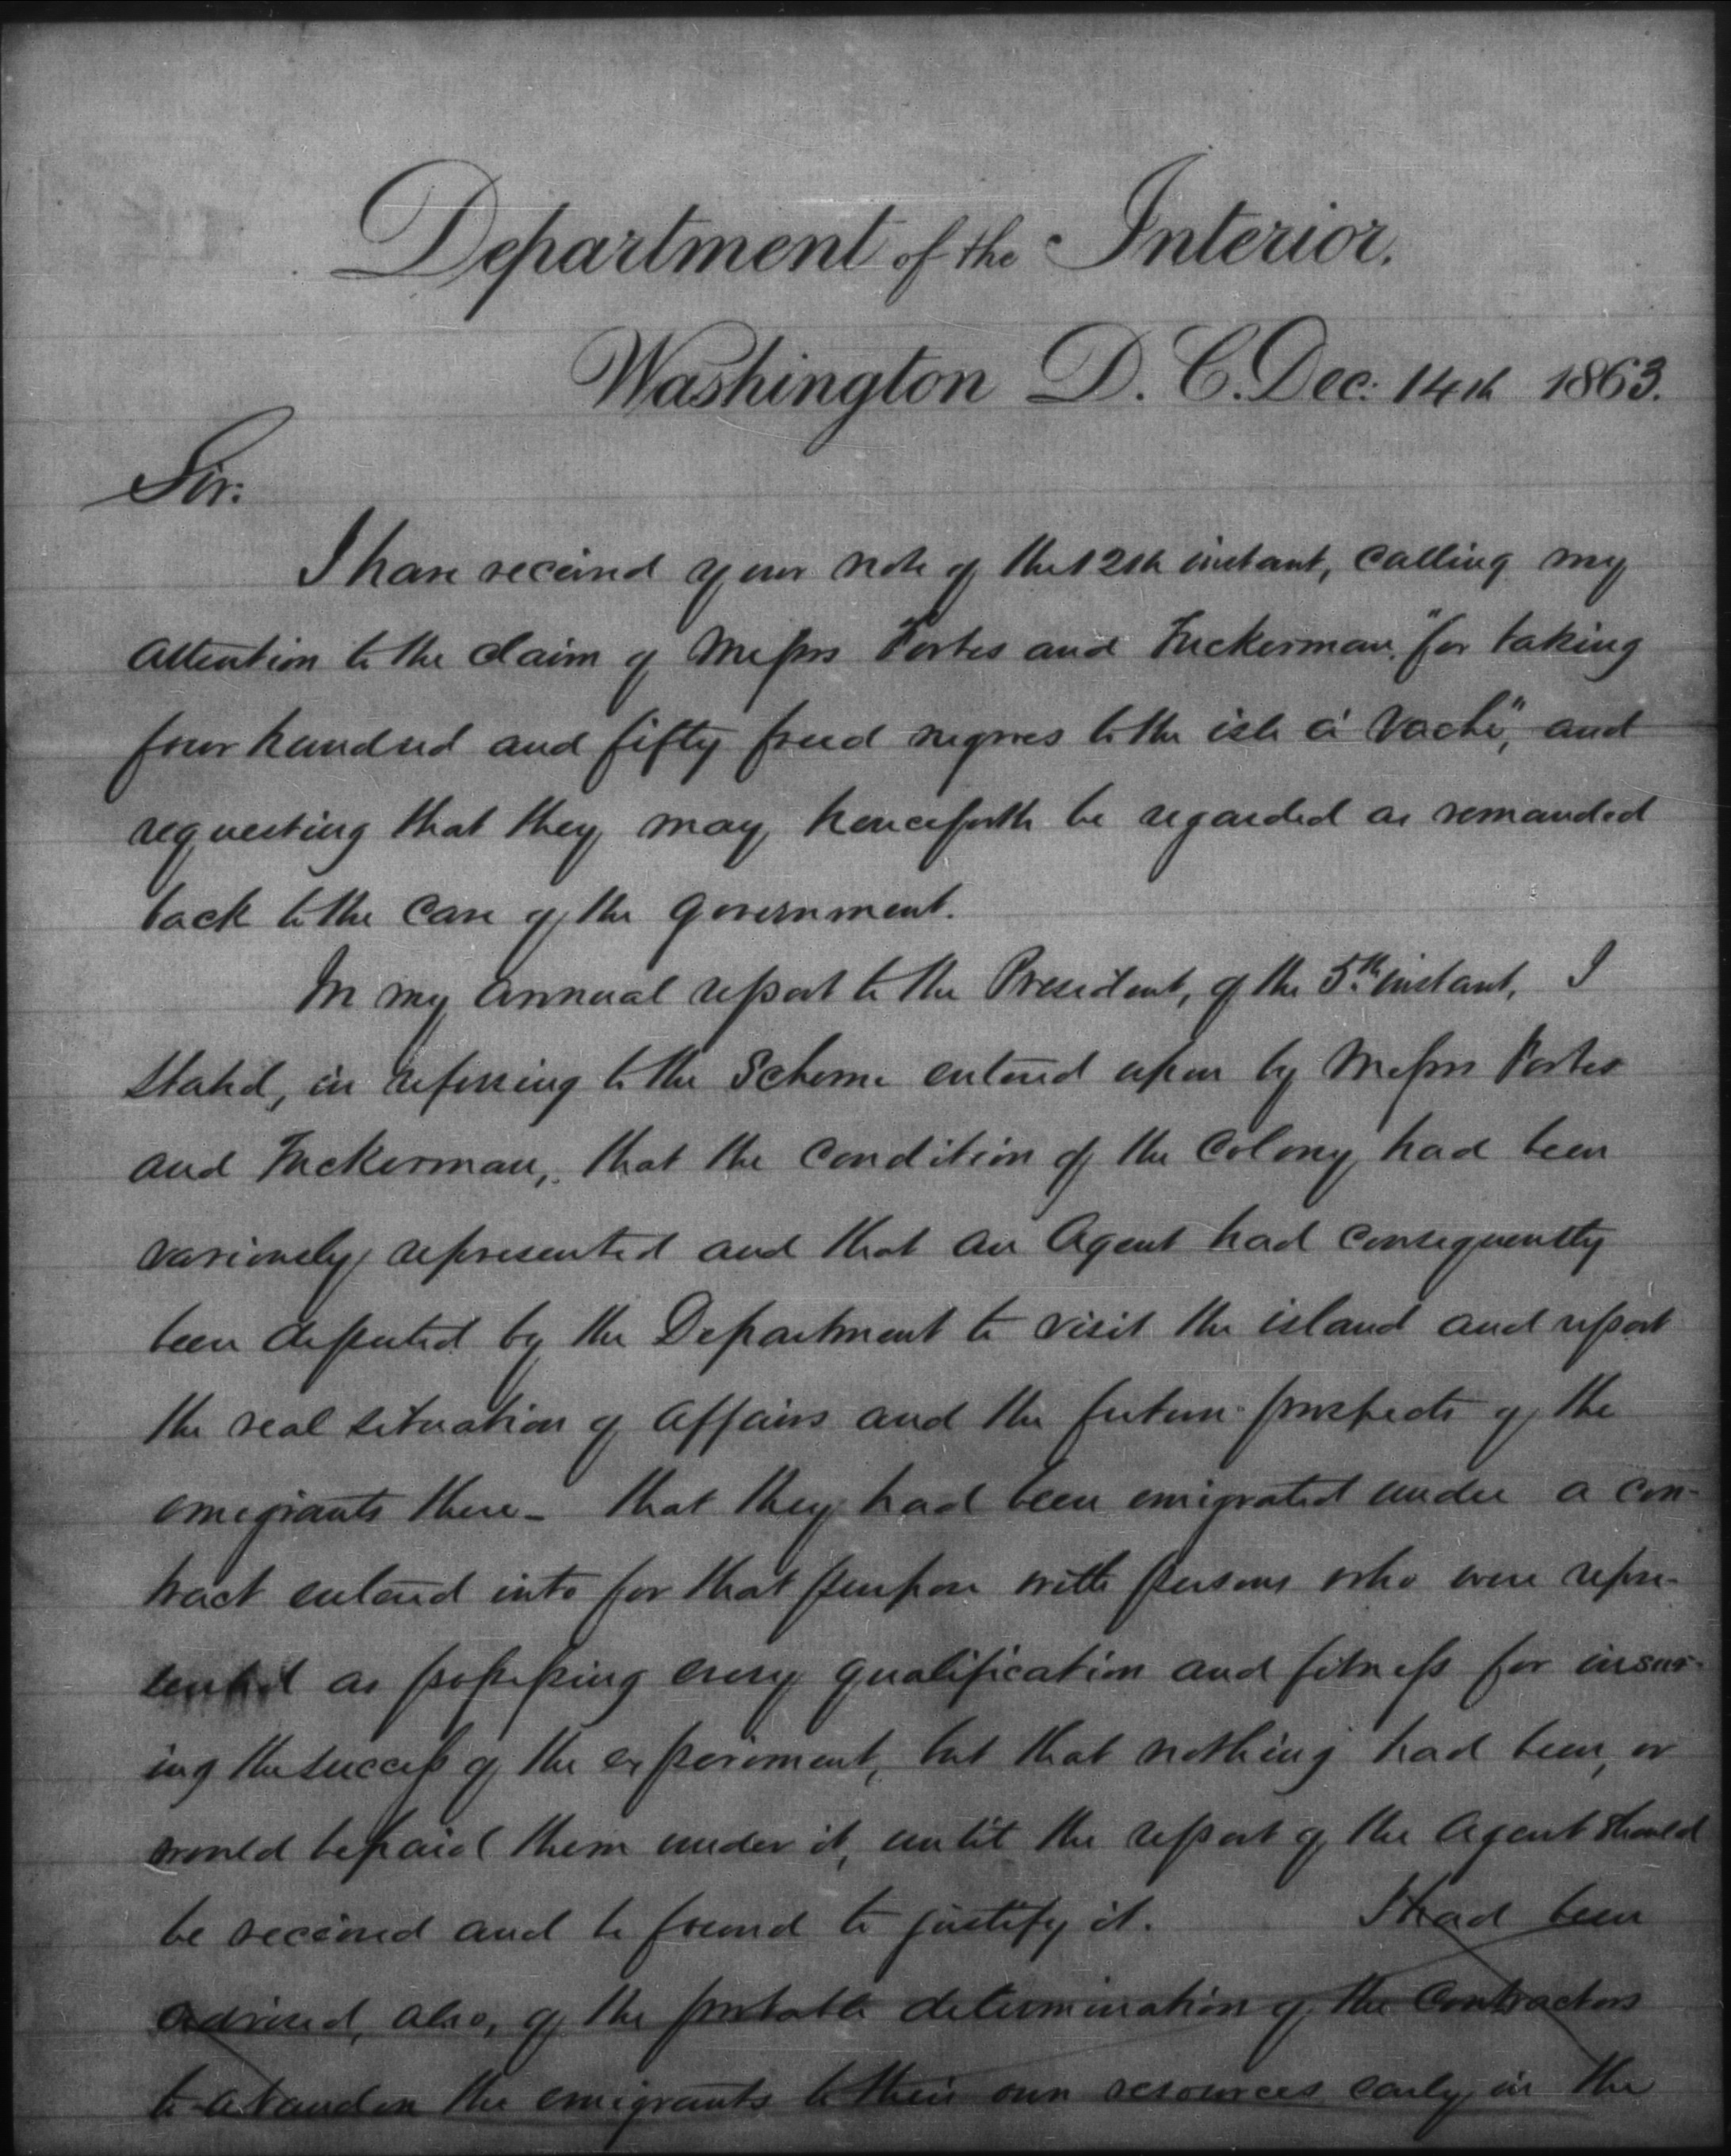 Department of the Interior.
Washington D. C. Dec. 14th 1863.
Sir:
I have received your note of the 12th instant, calling my
attention to the claim of Messrs Fortes and Tuckerman, "for taking
four hundred and fifty freed negroes to the isle a' Vache", and
requesting that they may henceforth be regarded as remanded
back to the care of the government.
In my annual report to the President, of the 5th instant, I
stated, in referring to the scheme entered upon by Messrs Fortes
and Tuckerman, that the condition of the colony had been
variously represented and that an Agent had consequently
been deputed by the Department to visit the island and report
the real situation of affairs and the future prospects of the
emigrants there - that they had been emigrated under a con-
tract entered into for that purpose with persons who were repre-
sented as possessing every qualification and fitness for insur-
ing the success of the experiment, but that nothing had been, or
would be paid them under it, until the report of the Agent should
be received and be found to justify it. I had been
advised, also, of the probable determination of the Contractors
to abandon the emigrants to their own resources early in the